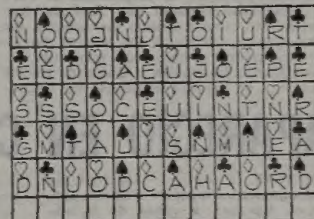 N O O J N D T O I U R T
E E D G A E U J O E P E
S S S O C E U Y N T N R
G M T A U I S N M I E A
D N U O D C A H A O R D